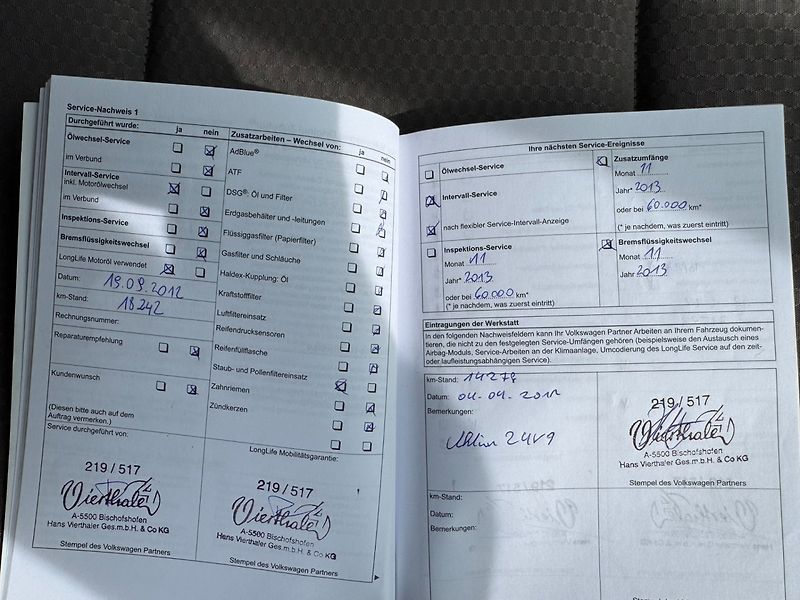 Service-Nachweis 1
Durchgeführt wurde: ja nein
Ölwechsel-Service
im Verbund
Intervall-Service
inkl. Motorölwechsel
im Verbund
Inspektions-Service
Bremsflüssigkeitswechsel
LongLife Motoröl verwendet
Datum: 19.09.2012
km-Stand: 18242
Rechnungsnummer:
Reparaturempfehlung
Kundenwunsch
(Diesen bitte auch auf dem
Auftrag vermerken.)
Service durchgeführt von:
219 / 517
Vierthaler
A-5500 Bischofshofen
Hans Vierthaler Ges.m.b.H. & Co KG
Stempel des Volkswagen Partners
Zusatzarbeiten – Wechsel von: ja nein
AdBlue®
ATF
DSG®: Öl und Filter
Erdgasbehälter und -leitungen
Flüssiggasfilter (Papierfilter)
Gasfilter und Schläuche
Haldex-Kupplung: Öl
Kraftstofffilter
Luftfiltereinsatz
Reifendrucksensoren
Reifenfüllflasche
Staub- und Pollenfiltereinsatz
Zahnriemen
Zündkerzen
LongLife Mobilitätsgarantie:
219 / 517
Vierthaler
A-5500 Bischofshofen
Hans Vierthaler Ges.m.b.H. & Co KG
Stempel des Volkswagen Partners
Ihre nächsten Service-Ereignisse
Ölwechsel-Service
Intervall-Service
nach flexibler Service-Intervall-Anzeige
Inspektions-Service
Monat 11
Jahr* 2013
oder bei 60.000 km*
(* je nachdem, was zuerst eintritt)
Zusatzumfänge
Monat 11
Jahr* 2013
oder bei 60.000 km*
(* je nachdem, was zuerst eintritt)
Bremsflüssigkeitswechsel
Monat 11
Jahr 2013
Eintragungen der Werkstatt
In den folgenden Nachweisfeldern kann Ihr Volkswagen Partner Arbeiten an Ihrem Fahrzeug dokumen-
tieren, die nicht zu den festgelegten Service-Umfängen gehören (beispielsweise den Austausch eines
Airbag-Moduls, Service-Arbeiten an der Klimaanlage, Umcodierung des LongLife Service auf den zeit-
oder laufleistungsabhängigen Service).
km-Stand: 14278
Datum: 04-04-2012
Bemerkungen:
Aktion 24V9
219 / 517
Vierthaler
A-5500 Bischofshofen
Hans Vierthaler Ges.m.b.H. & Co KG
Stempel des Volkswagen Partners
km-Stand:
Datum:
Bemerkungen: